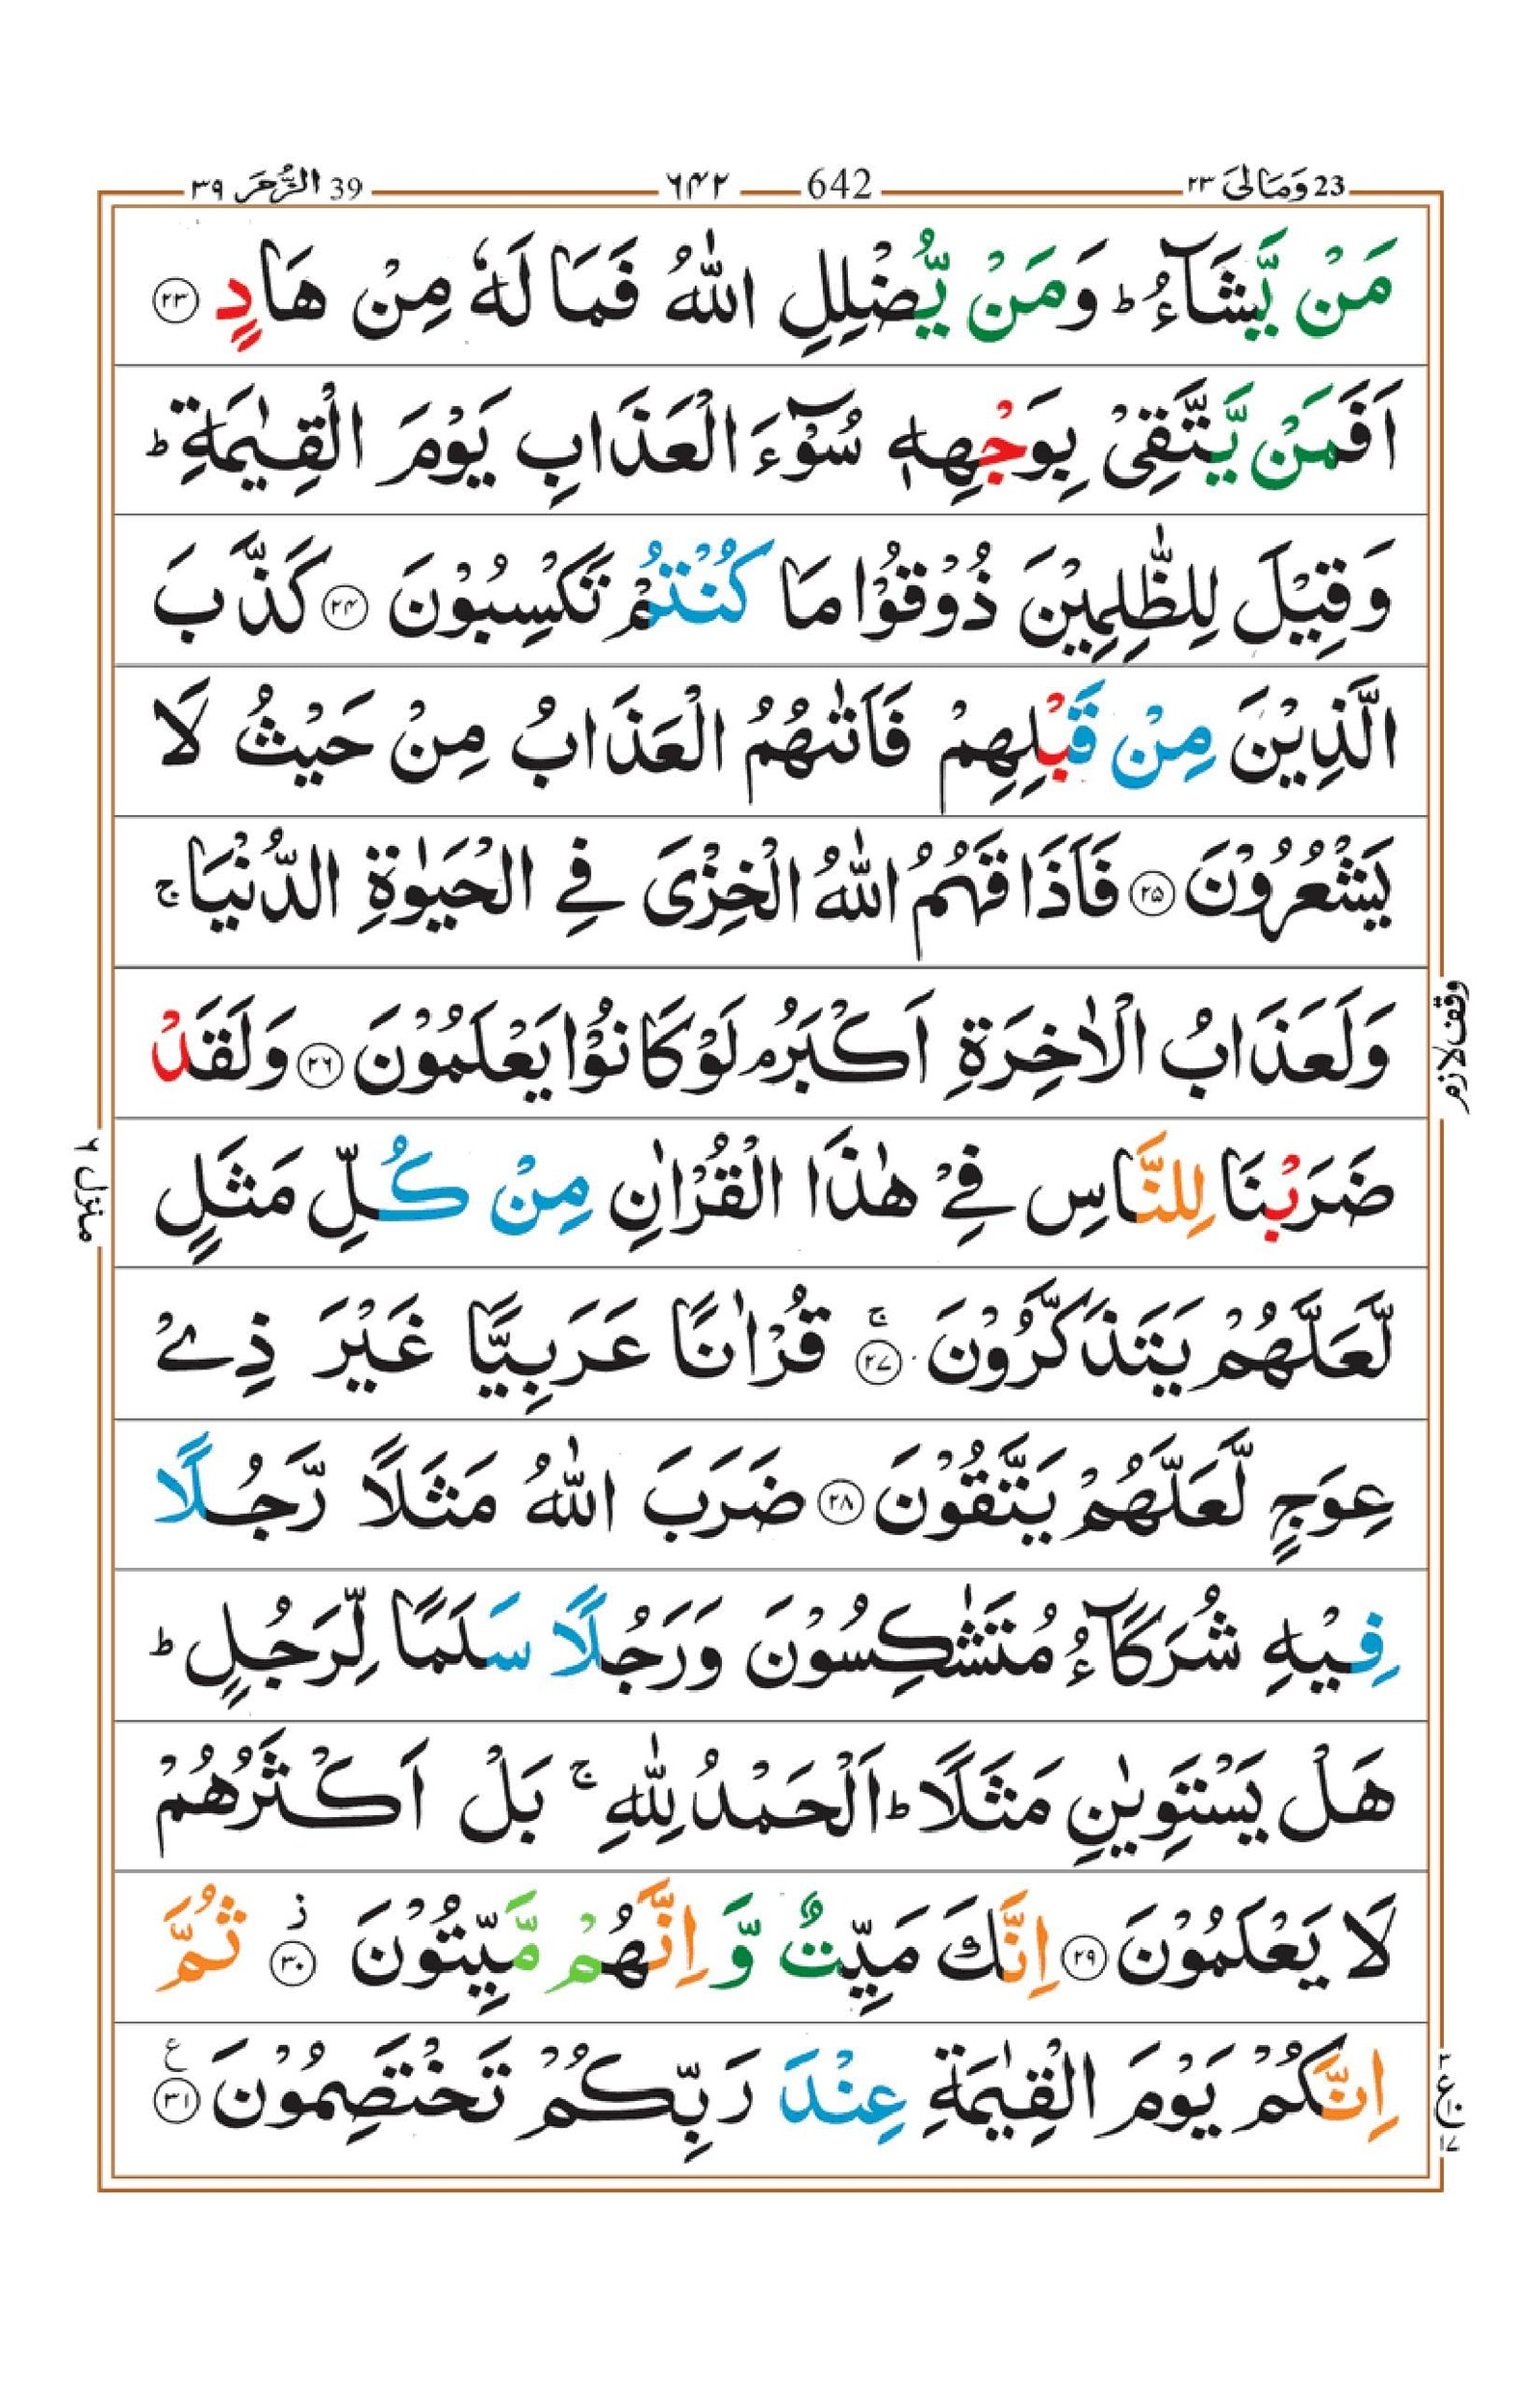 23 وَمَالِیَ ٢٣ 642 ٦٤٢ 39 الزُّمَر ٣٩
مَنْ یَّشَآءُ ؕ وَمَنْ یُّضْلِلِ اللّٰهُ فَمَا لَهٗ مِنْ هَادٍ ﴿۲۳﴾
اَفَمَنْ یَّتَّقِیْ بِوَجْهِهٖ سُوْٓءَ الْعَذَابِ یَوْمَ الْقِیٰمَةِ ؕ
وَقِیْلَ لِلظّٰلِمِیْنَ ذُوْقُوْا مَا كُنْتُمْ تَكْسِبُوْنَ ﴿۲۴﴾ كَذَّبَ
الَّذِیْنَ مِنْ قَبْلِهِمْ فَاَتٰىهُمُ الْعَذَابُ مِنْ حَیْثُ لَا
یَشْعُرُوْنَ ﴿۲۵﴾ فَاَذَاقَهُمُ اللّٰهُ الْخِزْیَ فِی الْحَیٰوةِ الدُّنْیَا ۚ
وَلَعَذَابُ الْاٰخِرَةِ اَكْبَرُ ۘ لَوْ كَانُوْا یَعْلَمُوْنَ ﴿۲۶﴾ وَلَقَدْ
وقف لازم
ضَرَبْنَا لِلنَّاسِ فِیْ هٰذَا الْقُرْاٰنِ مِنْ كُلِّ مَثَلٍ
منزل ٦
لَّعَلَّهُمْ یَتَذَكَّرُوْنَ ۚ ﴿۲۷﴾ قُرْاٰنًا عَرَبِیًّا غَیْرَ ذِیْ
عِوَجٍ لَّعَلَّهُمْ یَتَّقُوْنَ ﴿۲۸﴾ ضَرَبَ اللّٰهُ مَثَلًا رَّجُلًا
فِیْهِ شُرَكَآءُ مُتَشٰكِسُوْنَ وَرَجُلًا سَلَمًا لِّرَجُلٍ ؕ
هَلْ یَسْتَوِیٰنِ مَثَلًا ؕ اَلْحَمْدُ لِلّٰهِ ۚ بَلْ اَكْثَرُهُمْ
لَا یَعْلَمُوْنَ ﴿۲۹﴾ اِنَّكَ مَیِّتٌ وَّ اِنَّهُمْ مَّیِّتُوْنَ ؗ ﴿۳۰﴾ ثُمَّ
اِنَّكُمْ یَوْمَ الْقِیٰمَةِ عِنْدَ رَبِّكُمْ تَخْتَصِمُوْنَ ﴿۳۱﴾ ع
٣ ع ١٠ ١٧